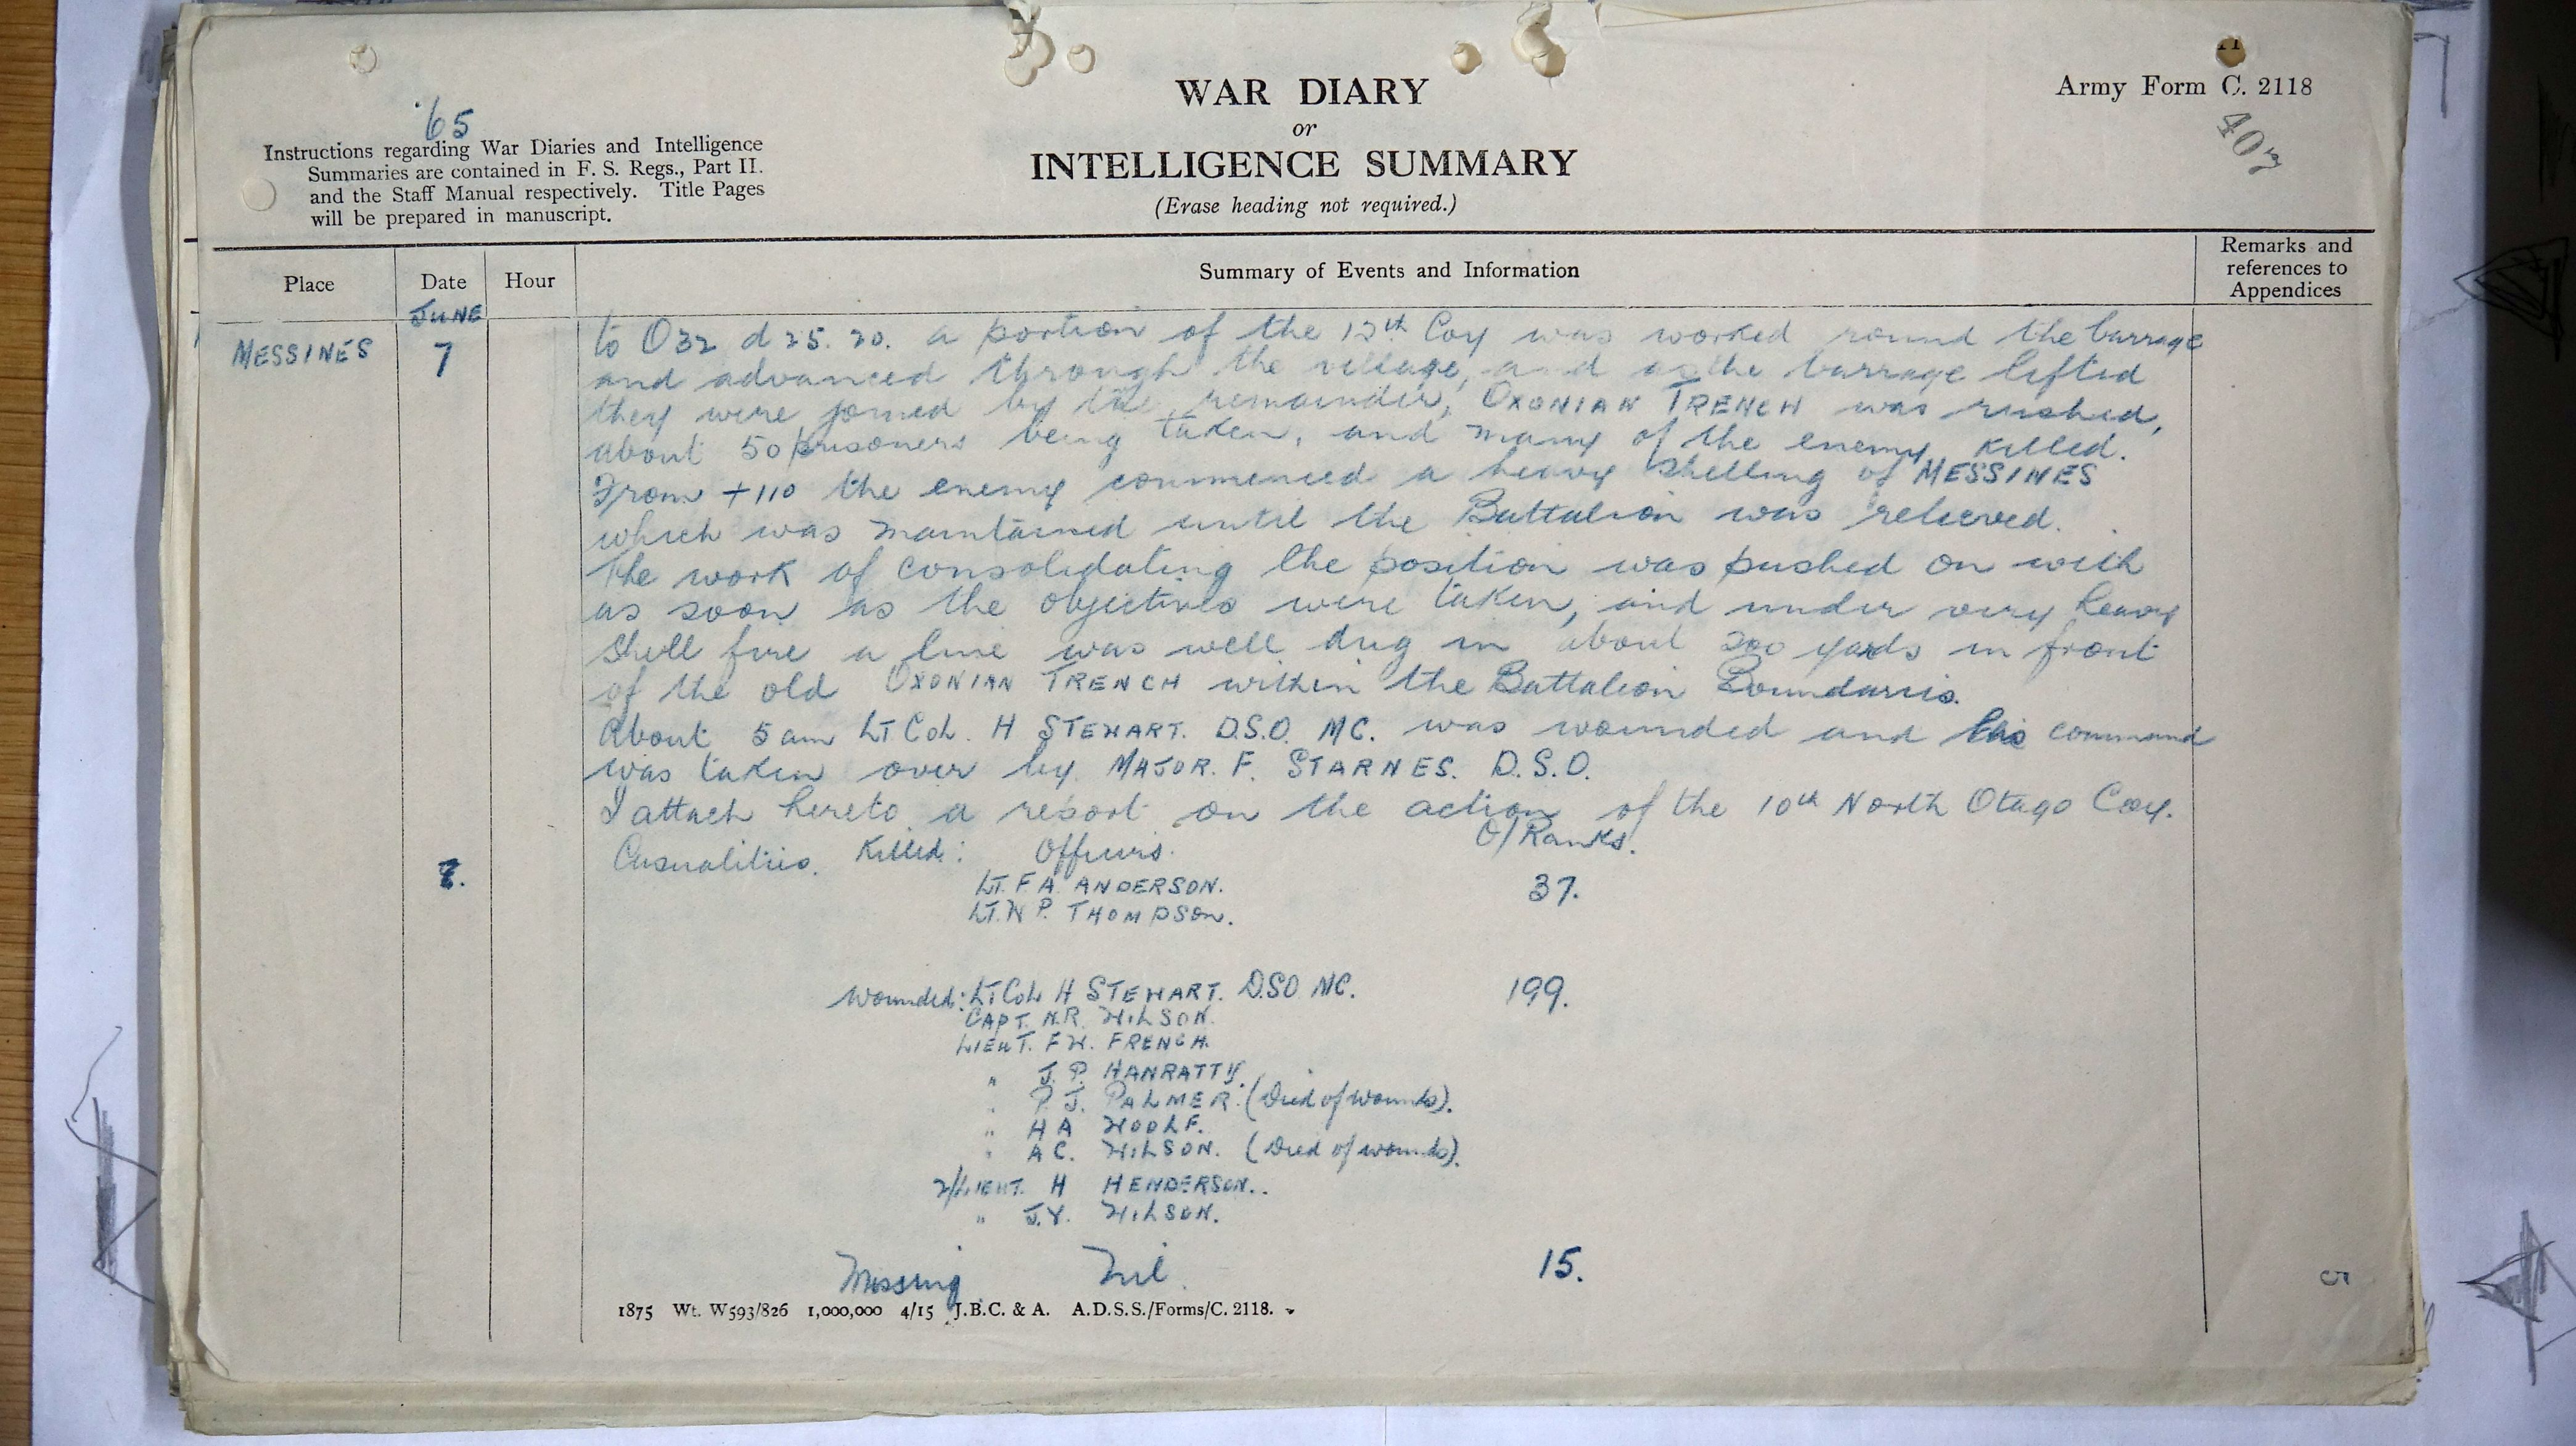 WAR DIARY
or
INTELLIGENCE SUMMARY
(Erase heading not required.)
Army Form C. 2118
407
'65
Instructions regarding War Diaries and Intelligence
Summaries are contained in F. S. Regs., Part II.
and the Staff Manual respectively. Title Pages
will be prepared in manuscript.
Place
Date
Hour
Summary of Events and Information
Remarks and
references to
Appendices
JUNE
MESSINES
7
to O32 d 25. 20. a portion of the 12th Coy was worked round the barrage
and advanced through the village, and as the barrage lifted
they were joined by the remainder, OXONIAN TRENCH was rushed,
about 50 prisoners being taken, and many of the enemy killed.
From +110 the enemy commenced a heavy shelling of MESSINES
which was maintained until the Battalion was relieved.
The work of consolidating the position was pushed on with
as soon as the objectives were taken, and under very heavy
shell fire a line was well dug in about 200 yards in front
of the old OXONIAN TRENCH within the Battalion Boundaries.
About 5 am LT COL. H STEWART. D.S.O. MC. was wounded and his command
was taken over by MAJOR. F. STARNES. D.S.O.
I attach hereto a report on the action of the 10th North Otago Coy.
8.
Casualities. Killed: Officers. O/Ranks.
LT. F A ANDERSON. 37.
LT. W P. THOMPSON.
Wounded: LT COL H STEWART. DSO MC. 199.
CAPT. N.R. WILSON.
LIEUT. F W. FRENCH.
" J. P. HANRATTY.
" P. J. PALMER. (Died of wounds).
" H A WOOLF.
" A C. WILSON. (Died of wounds).
2/LIEUT. H HENDERSON..
" J.Y. WILSON.
Missing Nil. 15.
1875 Wt. W593/826 1,000,000 4/15 J.B.C. & A. A.D.S.S./Forms/C. 2118.